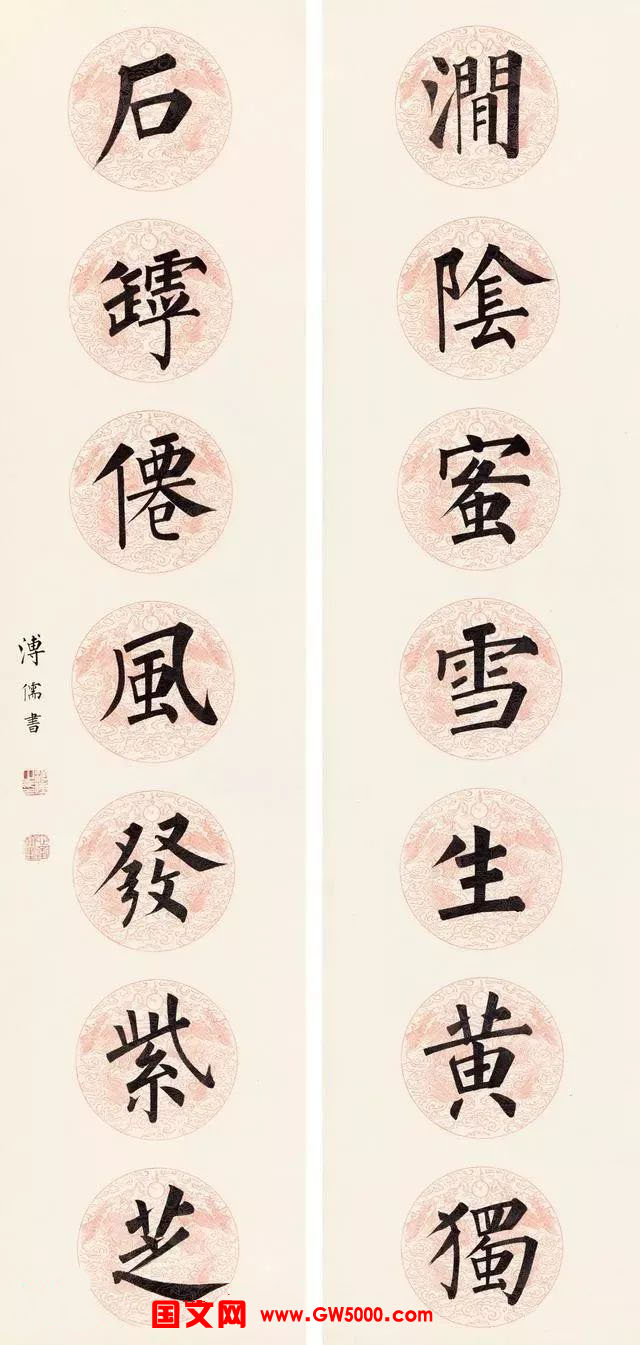 澗陰蜜雪生黄獨
石罅僊風發紫芝
溥儒書
国文网 www.GW5000.com